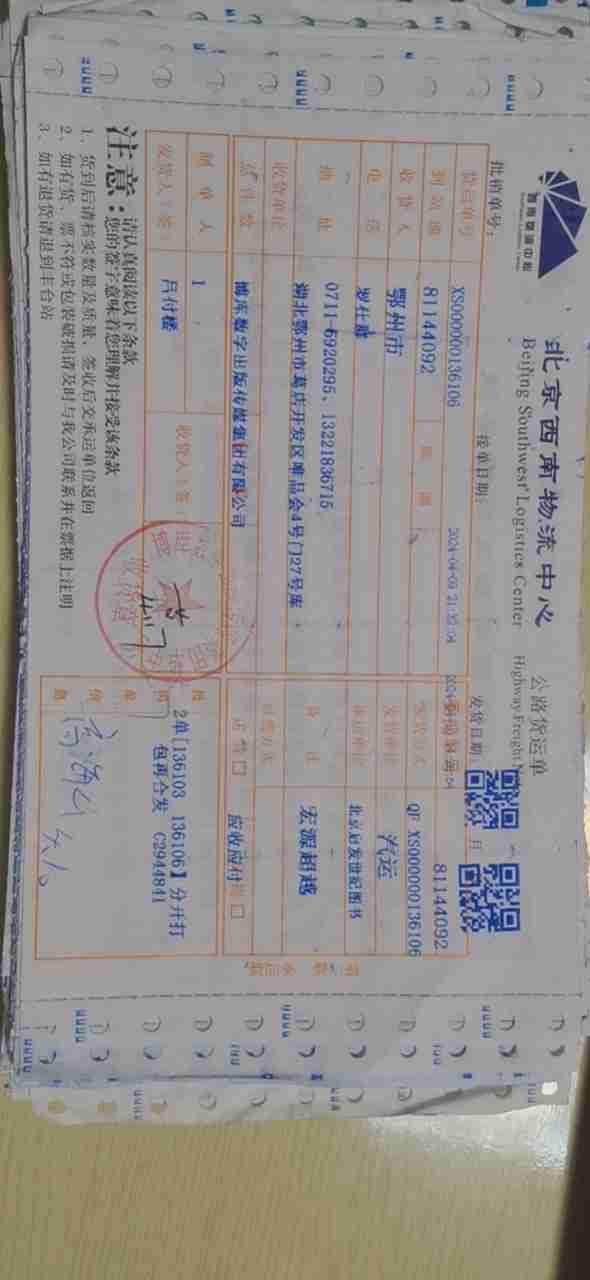 西南物流中心
北京西南物流中心
Beijing Southwest Logistics Center
公路货运单
Highway Freight
批销单号:
接单日期:
2024-04-09 21:32:04
发货日期:
月
81144092
货运单号
XS000000136106
QF XS000000136106
到站地
81144092
发货方式
汽运
收货人
鄂州市
发货单位
北京启发世纪图书
电话
罗社雄
承运单位
宏源超越
地址
0711-6920295、13221836715
湖北鄂州市葛店开发区唯品会4号门27号库
备注
收货单位
博库数字出版传媒集团有限公司
付费方式
店付
应收应付
总件数
制单人
1
2单[136103 136106】分开打
包再合发 C2944841
发货人(签)
吕付楼
收货人(签)
收货章
注意:
请认真阅读以下条款
您的签字意味着您理解并接受该条款
1、货到后请核实数量及质量、签收后交承运单位返回
2、如有货、票不符或包装破损请及时与我公司联系并在票据上注明
3、如有退货请退到丰台站